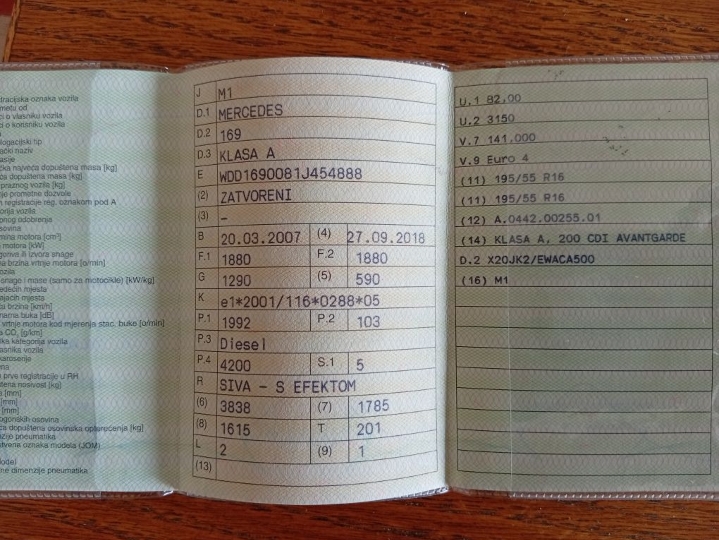 vozila
metu od
i o vlasniku vozila
i o korisniku vozila
ologacijski tip
ački naziv
najveća dopuštena masa [kg]
dopuštena masa [kg]
praznog vozila [kg]
prometne dozvole
registracije reg. oznakom pod A
orija vozila
odobrenja
motora [cm³]
motora [kW]
gorivo ili izvora snage
brzina vrtnje motora [o/min]
vozila
snage i mase (samo za motocikle) [kW/kg]
mjesta
mjesta
brzina [km/h]
buka [dB]
vrtnje motora kod mjerenja stac. buke [o/min]
CO₂ [g/km]
kategorija vozila
vozila
karoserije
prve registracije u RH
nosivost [kg]
[mm]
[mm]
[mm]
pogonskih osovina
dopuštena osovinska opterećenja [kg]
pneumatika
oznaka modela (JOM)
model
dimenzije pneumatika
J M1
D.1 MERCEDES
D.2 169
D.3 KLASA A
E WDD1690081J454888
(2) ZATVORENI
(3) –
B 20.03.2007 (4) 27.09.2018
F.1 1880 F.2 1880
G 1290 (5) 590
K e1*2001/116*0288*05
P.1 1992 P.2 103
P.3 Diesel
P.4 4200 S.1 5
R SIVA - S EFEKTOM
(6) 3838 (7) 1785
(8) 1615 T 201
L 2 (9) 1
(13)
U.1 82.00
U.2 3150
V.7 141.000
V.9 Euro 4
(11) 195/55 R16
(11) 195/55 R16
(12) A.0442.00255.01
(14) KLASA A, 200 CDI AVANTGARDE
D.2 X20JK2/EWACA500
(16) M1